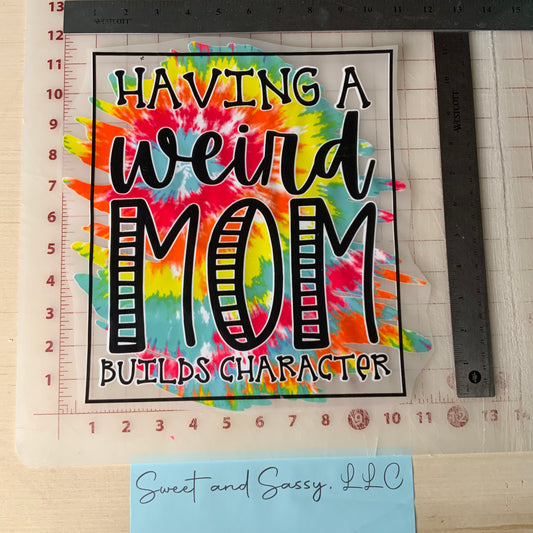 13
1 2 3 4 5 6 7 8 9 10 11 12 13 14 15
WESTCOTT
12
11
10
9
8
7
6
5
4
3
2
1
HAVING A
weird
MOM
BUILDS CHARACTER
WESTCOTT
1 2 3 4 5 6 7 8 9 10 11 12
Sweet and Sassy, LLC